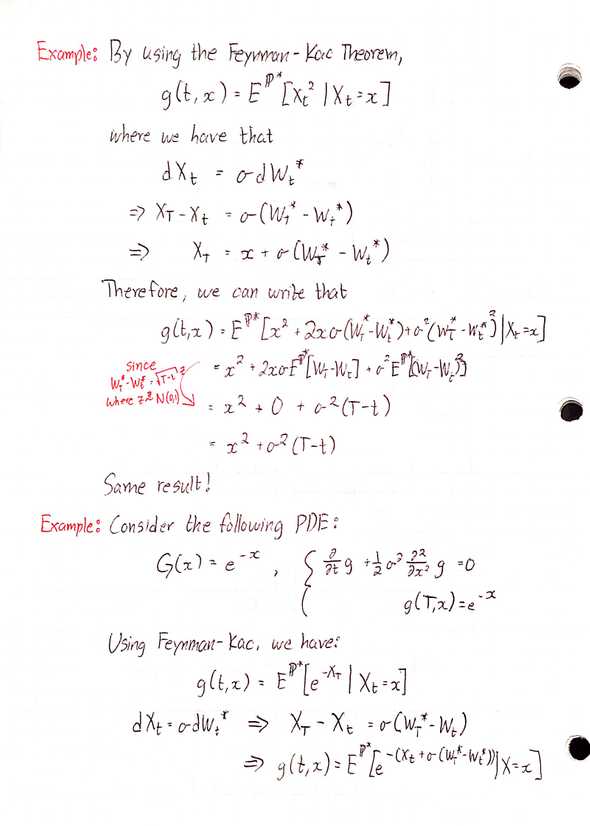 Example: By using the Feynman-Kac Theorem,
g(t,x) = E^ℙ* [X_t² | X_t = x]
where we have that
dX_t = σdW_t*
⇒ X_T - X_t = σ(W_T* - W_t*)
⇒ X_T = x + σ(W_T* - W_t*)
Therefore, we can write that
g(t,x) = E^ℙ* [x² + 2xσ(W_T* - W_t*) + σ²(W_T* - W_t*)² | X_t = x]
= x² + 2xσE^ℙ*[W_T - W_t] + σ²E^ℙ*[(W_T - W_t)²]
since
W_T* - W_t* = √T-t z
where z ~ N(0,1)
= x² + 0 + σ²(T-t)
= x² + σ²(T-t)
Same result!
Example: Consider the following PDE:
G(x) = e^-x , { ∂/∂t g + 1/2 σ² ∂²/∂x² g = 0
g(T,x) = e^-x
Using Feynman-Kac, we have:
g(t,x) = E^ℙ* [e^-X_T | X_t = x]
dX_t = σdW_t* ⇒ X_T - X_t = σ(W_T* - W_t)
⇒ g(t,x) = E^ℙ* [e^-(X_t + σ(W_T* - W_t*)) | X = x]